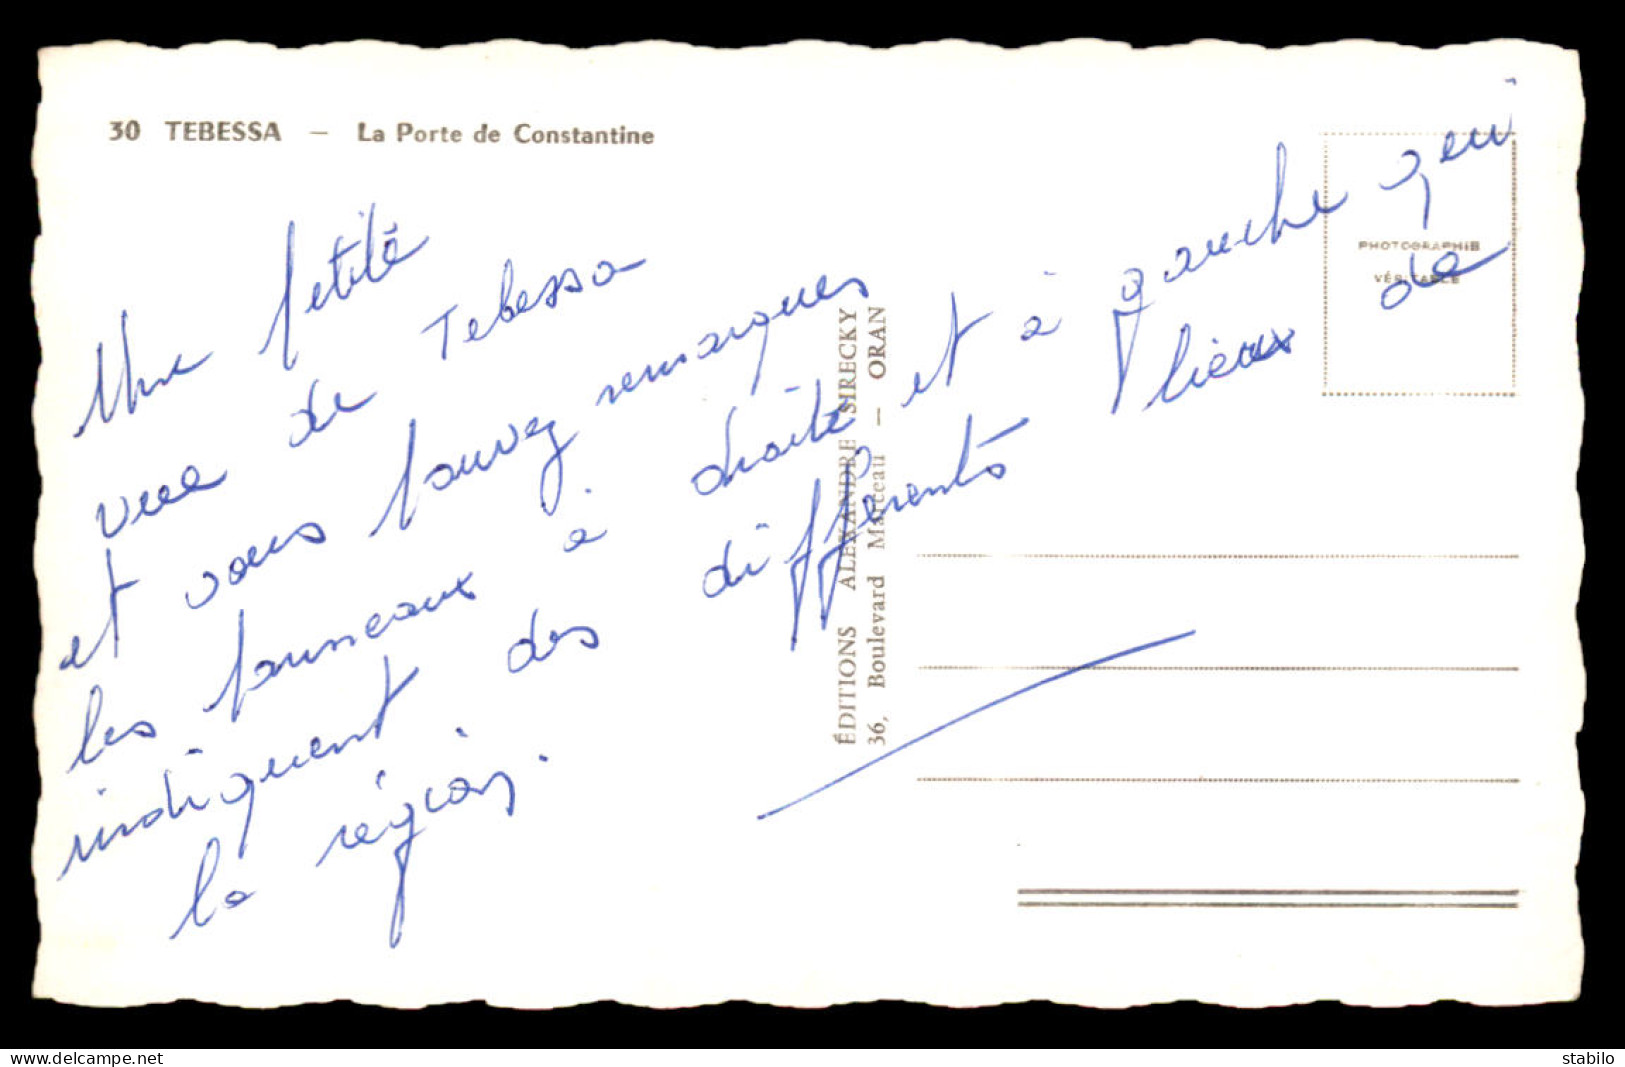 30 TEBESSA — La Porte de Constantine
Une petite
vue de Tebessa
et vous pouvez remarques
les panneaux à droite et à gauche qui
indiquent des différents lieux de
la région.
ÉDITIONS ALEXANDRE SIRECKY
36, Boulevard Marceau — ORAN
PHOTOGRAPHIE
VÉRITABLE
delcampe.net
stabilo